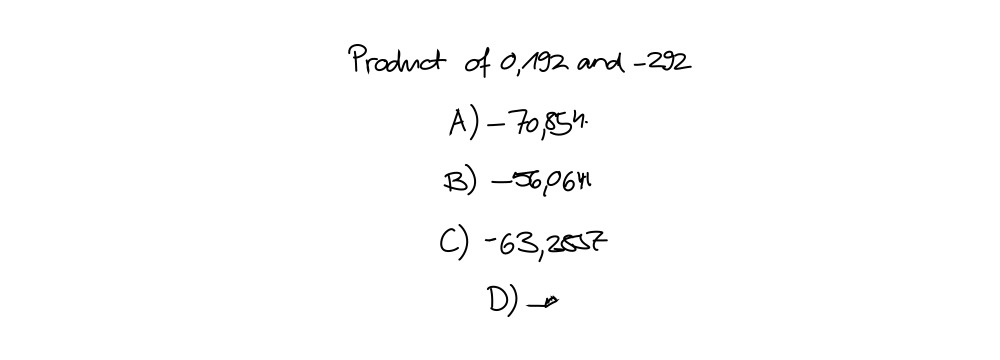 Product of 0,192 and -292
A) -70,854.
B) -56,064
C) -63,2557
D) -